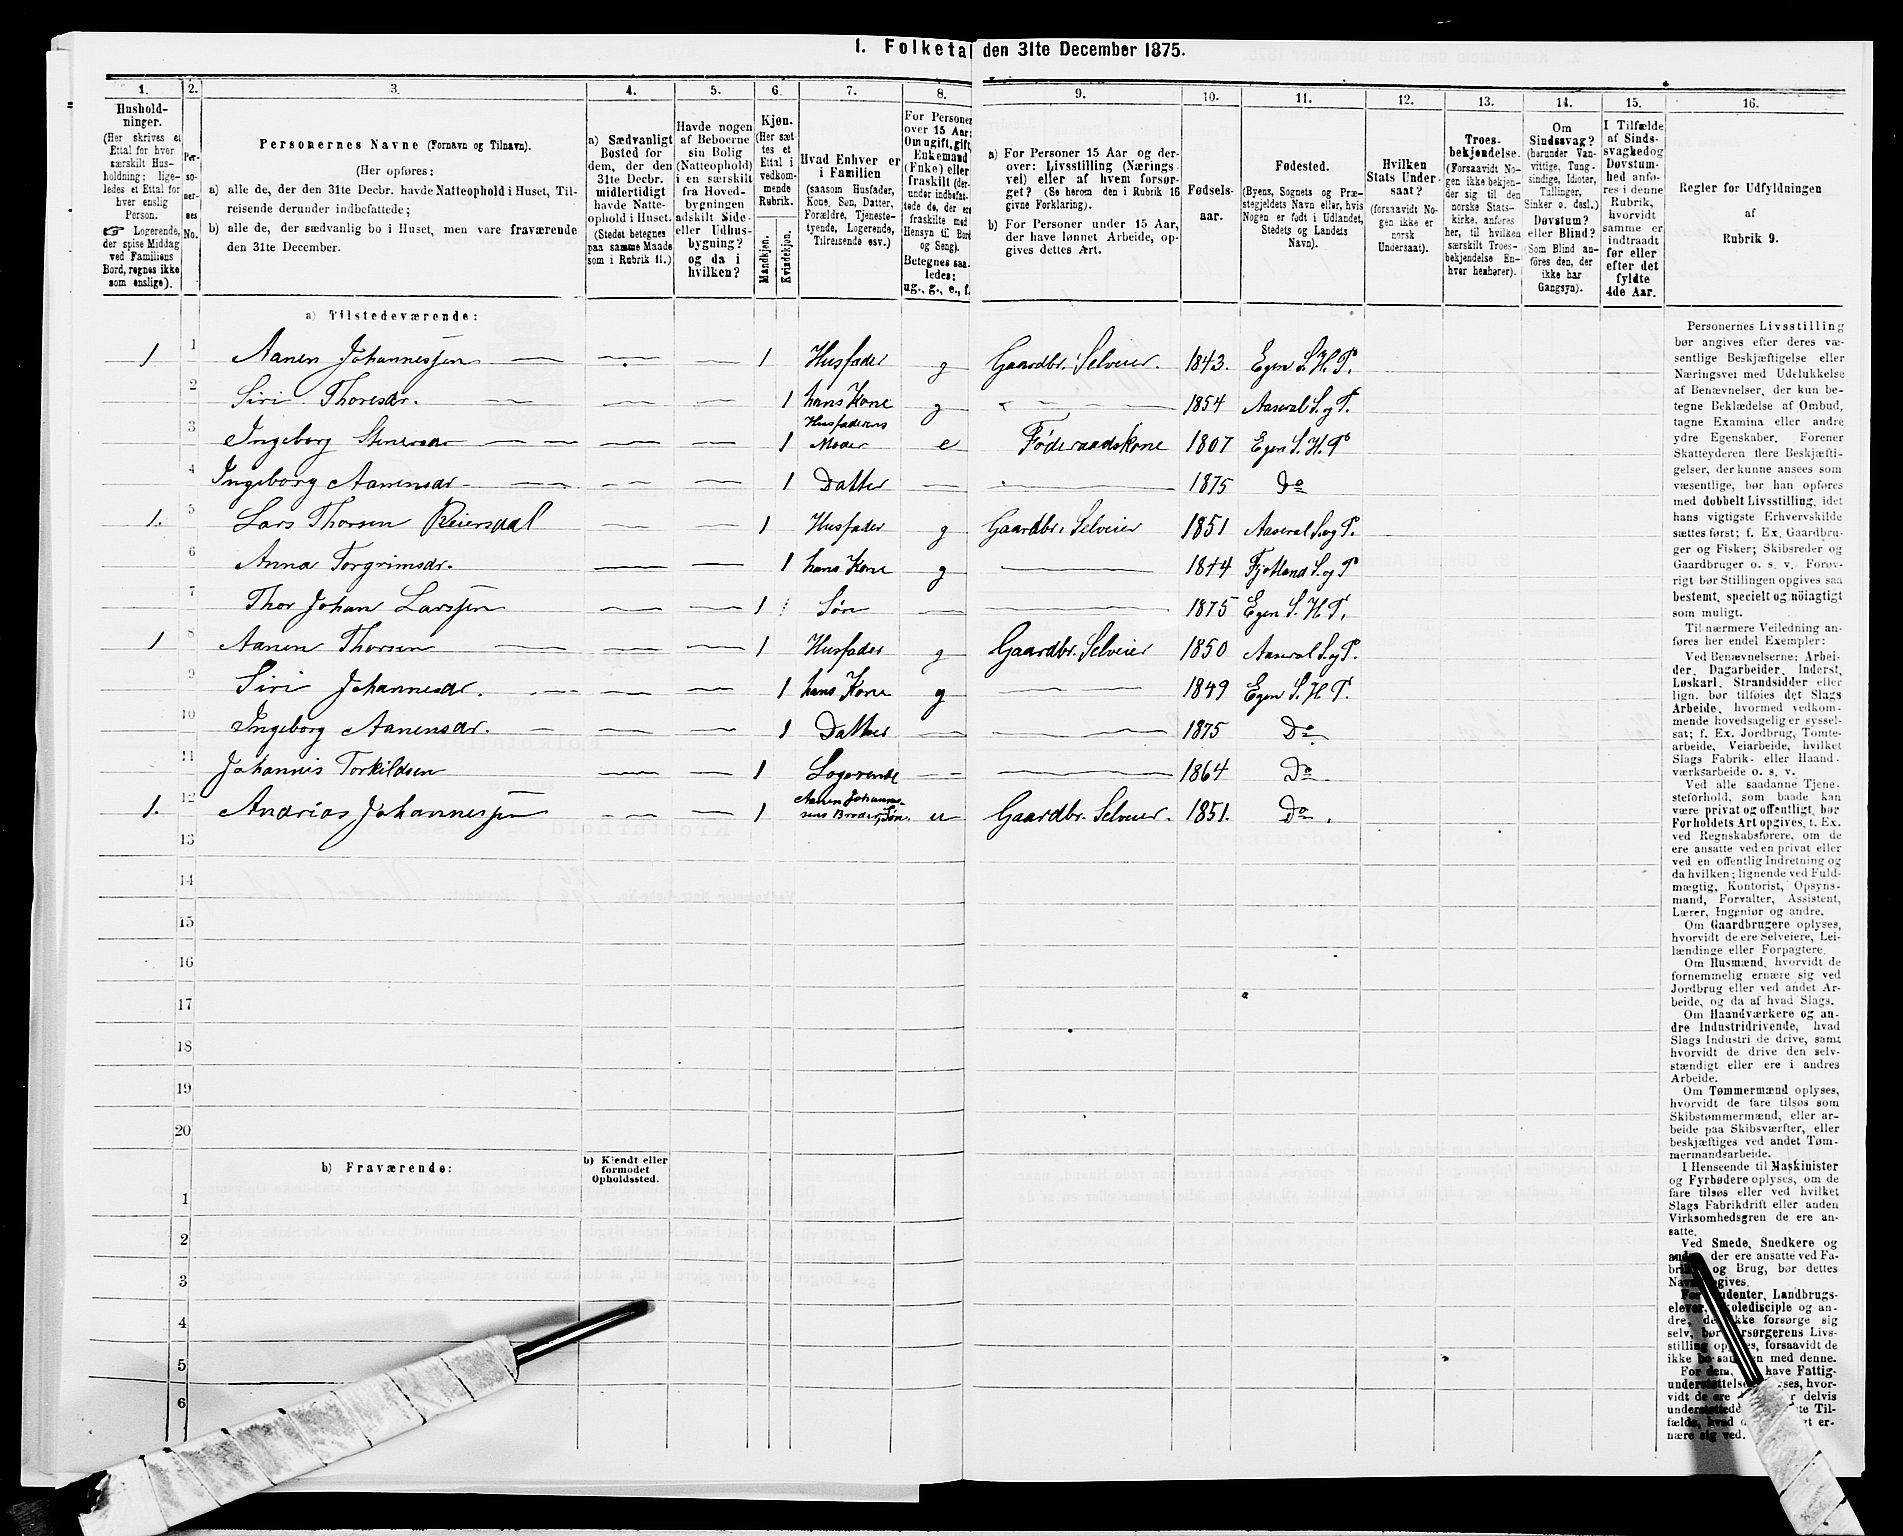 1. Folketal den 31te December 1875.
1. 2. 3. 4. 5. 6. 7. 8. 9. 10. 11. 12. 13. 14. 15. 16.
Hushold-
ninger.
(Her skrives et
Ettal for hver
særskilt Hus-
holdning; lige-
ledes et Ettal for
hver enslig
Person.
☞ Logerende,
der spise Middag
ved Familiens
Bord, regnes ikke
som enslige).
Per-
so-
ner-
nes
No.
Personernes Navne (Fornavn og Tilnavn).
(Her opføres:
a) alle de, der den 31te Decbr. havde Natteophold i Huset, Til-
reisende derunder indbefattede;
b) alle de, der sædvanlig bo i Huset, men vare fraværende
den 31te December.
a) Sædvanligt
Bosted for
dem, der den
31te Decbr.
midlertidigt
havde Natte-
ophold i Huset.
(Stedet betegnes
paa samme Maade
som i Rubrik 11.)
Havde nogen
af Beboerne
sin Bolig
(Natteophold)
i en særskilt
fra Hoved-
bygningen
adskilt Side-
eller Udhus-
bygning?
og da i
hvilken?
Kjøn.
(Her sæt-
tes et
Ettal i
vedkom-
mende
Rubrik.
Mandkjøn.
Kvindekjøn.
Hvad Enhver er
i Familien
(saasom Husfader,
Kone, Søn, Datter,
Forældre, Tjeneste-
tyende, Logerende,
Tilreisende osv.)
For Personer
over 15 Aar:
Om ugift, gift,
Enkemand
(Enke) eller
fraskilt (der-
under indbefat-
tede de, der ere
fraskilte med
Hensyn til Bord
og Seng).
Betegnes saa-
ledes:
ug., g., e., f.
a) For Personer 15 Aar og der-
over: Livsstilling (Nærings-
vei) eller af hvem forsør-
get? (Se herom den i Rubrik 16
givne Forklaring).
b) For Personer under 15 Aar,
der have lønnet Arbeide, op-
gives dettes Art.
Fødsels-
aar.
Fødested.
(Byens, Sognets og Præ-
stegjeldets Navn eller, hvis
Nogen er født i Udlandet,
Stedets og Landets
Navn).
Hvilken
Stats Under-
saat?
(forsaavidt No-
gen ikke er
norsk
Undersaat).
Troes-
bekjendelse.
(Forsaavidt No-
gen ikke bekjen-
der sig til den
norske Stats-
kirke, anføres
her, til hvilken
særskilt Troes-
bekjendelse En-
hver henhører).
Om
Sindssvag?
(herunder Van-
vittige, Tung-
sindige, Idioter,
Tullinger,
Sinker o. desl.)
Døvstum?
eller Blind?
(Som Blind an-
føres den, der
ikke har
Gangsyn).
I Tilfælde
af Sinds-
svaghed og
Døvstum-
hed anfø-
res i denne
Rubrik,
hvorvidt
samme er
indtraadt
før eller
efter det
fyldte
4de Aar.
Regler for Udfyldningen
af
Rubrik 9.
a) Tilstedeværende:
1 1 Aanen Johannessen 1 Husfader g Gaardbr. Selveier. 1843. Egen S. H. P.
2 Siri Thoresdr. 1 hans Kone g 1854 Aaseral S. og P.
3 Ingeborg Stenersdr 1 Husfaderens Moder e Føderaadskone 1807 Egen S. H. P.
4 Ingeborg Aanensdr. 1 Datter 1875 Do
1. 5 Lars Thorsen Reiersdal 1 Husfader g Gaardbr. Selveier 1851 Aaseral S. og P.
6 Anna Torgrimsdr. 1 hans Kone g 1844 Fjotland S. og P
7 Thor Johan Larssen 1 Søn 1875 Egen S. H. P.
1 8 Aanen Thorsen 1 Husfader g Gaardbr. Selveier 1850 Aaseral S. og P.
9 Siri Johannesdr. 1 hans Kone g 1849 Egen S. H. P.
10 Ingeborg Aanensdr. 1 Datter 1875 Do
11 Johannis Torkildsen 1 Logerende 1864 Do
1. 12 Andrias Johannessen 1 Aanen Johannes-
sens Broder, Søn. u Gaardbr. Selveier. 1851. Do.
13
14
15
16
17
18
19
20
b) Fraværende:
b) Kjendt eller
formodet
Opholdssted.
1
2
3
4
5
6
Personernes Livsstilling
bør angives efter deres væ-
sentlige Beskjæftigelse eller
Næringsvei med Udelukkelse
af Benævnelser, der kun be-
tegne Beklædelse af Ombud,
tagne Examina eller andre
ydre Egenskaber. Forener
Skatteyderen flere Beskjæfti-
gelser, der kunne ansees som
væsentlige, bør han opføres
med dobbelt Livsstilling, idet
hans vigtigste Erhvervskilde
sættes først; f. Ex. Gaardbru-
ger og Fisker; Skibsreder og
Gaardbruger o. s. v. Forøv-
rigt bør Stillingen opgives saa
bestemt, specielt og nöiagtigt
som muligt.
Til nærmere Veiledning an-
føres her endel Exempler:
Ved Benævnelserne: Arbei-
der, Dagarbeider, Inderst,
Løskarl, Strandsidder eller
lign. bør tilføies det Slags
Arbeide, hvormed vedkom-
mende hovedsagelig er syssel-
sat; f. Ex. Jordbrug, Tomte-
arbeide, Veiarbeide, hvilket
Slags Fabrik- eller Haand-
værksarbeide o. s. v.
Ved alle saadanne Tjene-
steforhold, som baade kan
være privat og offentligt, bør
Forholdets Art opgives, f. Ex.
ved Regnskabsførere, om de
ere ansatte ved en privat eller
ved en offentlig Indretning og
da hvilken; lignende ved Fuld-
mægtig, Kontorist, Opsyns-
mand, Forvalter, Assistent,
Lærer, Ingeniør og andre.
Om Gaardbrugere oplyses,
hvorvidt de ere Selveiere, Lei-
lændinge eller Forpagtere.
Om Husmænd, hvorvidt de
fornemmelig ernære sig ved
Jordbrug eller ved andet Ar-
beide, og da af hvad Slags.
Om Haandværkere og an-
dre Industridrivende, hvad
Slags Industri de drive, samt
hvorvidt de drive den selv-
stændigt eller ere i andres
Arbeide.
Om Tømmermænd oplyses,
hvorvidt de fare tilsøs som
Skibstømmermænd, eller ar-
beide paa Skibsværfter, eller
beskjæftiges ved andet Tøm-
mermandsarbeide.
I Henseende til Maskinister
og Fyrbødere oplyses, om de
fare tilsøs eller ved hvilket
Slags Fabrikdrift eller anden
Virksomhedsgren de ere an-
satte.
Ved Smede, Snedkere og
der ere ansatte ved Fa-
og Brug, bør dettes